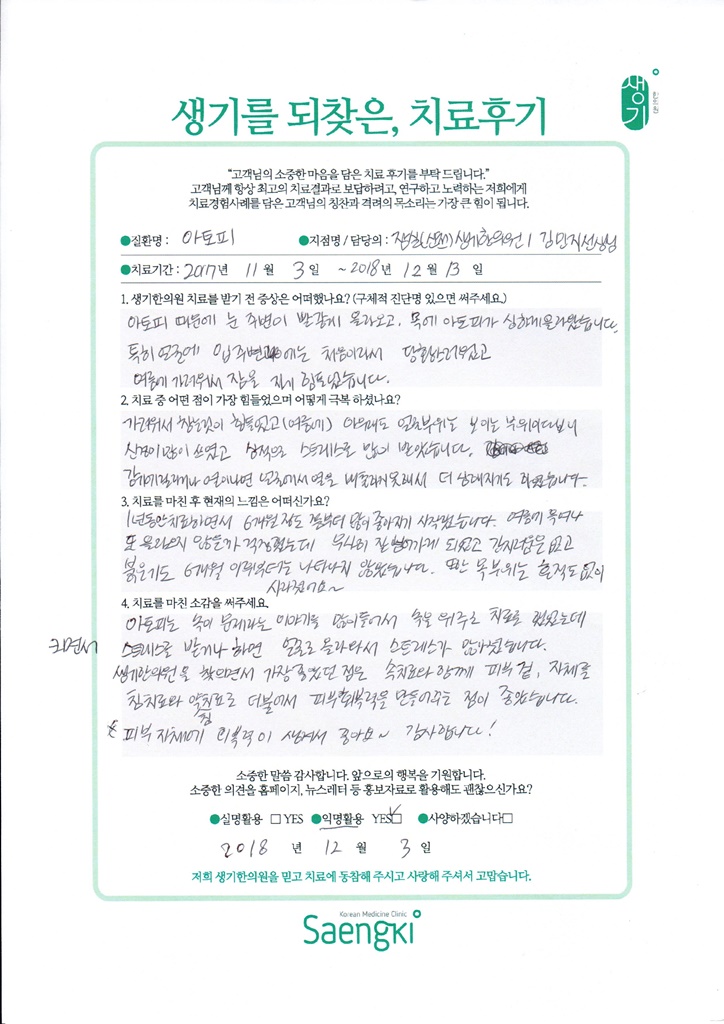 생기를 되찾은, 치료후기
생기
한의원
"고객님의 소중한 마음을 담은 치료 후기를 부탁 드립니다."
고객님께 항상 최고의 치료결과로 보답하려고, 연구하고 노력하는 저희에게
치료경험사례를 담은 고객님의 칭찬과 격려의 목소리는 가장 큰 힘이 됩니다.
●질환명 : 아토피 ●지점명 / 담당의 : 생기한의원 / 김민지선생님
●치료기간 : 2017년 11월 3일 ~2018년 12월 13일
1. 생기한의원 치료를 받기 전 증상은 어떠했나요? (구체적 진단명 있으면 써주세요.)
아토피 때문에 눈 주변이 빨갛게 올라오고, 목에 아토피가 심하게 올라왔습니다.
특히 얼굴에 입주변에는 처음이라서 당황스러웠고
여름에 가려워서 잠을 자기 힘들었습니다.
2. 치료 중 어떤 점이 가장 힘들었으며 어떻게 극복 하셨나요?
가려워서 참는것이 힘들었고(여름에) 아무래도 얼굴부위는 보이는 부위이다보니
신경이 많이 쓰였고 심적으로 스트레스를 많이 받았습니다.
감기에 걸리거나 열이나면 얼굴에서 열을 배출하지못해서 더 심해지기도 하였습니다.
3. 치료를 마친 후 현재의 느낌은 어떠신가요?
1년동안 치료하면서 6개월정도 때부터 많이 좋아지기 시작했습니다. 여름에 목이나
또 올라오지 않을까 걱정했는데 무사히 잘 넘어가게 되었고 간지러움은 없고
붉은기도 6개월 이후부터는 나타나지 않았습니다. 목부위는 흔적도 없이
사라졌어요~
4. 치료를 마친 소감을 써주세요.
아토피는 속의 문제라는 이야기를 많이들어서 속을 위주로 치료를 했었는데
크면서 스트레스를 받거나 하면 얼굴로 올라와서 스트레스가 많았었습니다.
생기한의원을 찾으면서 가장 좋았던 점은 속치료와 함께 피부 겉, 자체를
침치료와 약침치료로 더불어서 피부 회복력을 만들어주는 점이 좋았습니다.
* 피부 자체에 회복력이 생겨서 좋아요~ 감사합니다!
소중한 말씀 감사합니다. 앞으로의 행복을 기원합니다.
소중한 의견을 홈페이지, 뉴스레터 등 홍보자료로 활용해도 괜찮으신가요?
●실명활용 □YES ●익명활용 YES☑ ●사양하겠습니다□
2018 년 12 월 3 일
저희 생기한의원을 믿고 치료에 동참해 주시고 사랑해 주셔서 고맙습니다.
Korean Medicine Clinic
Saengki